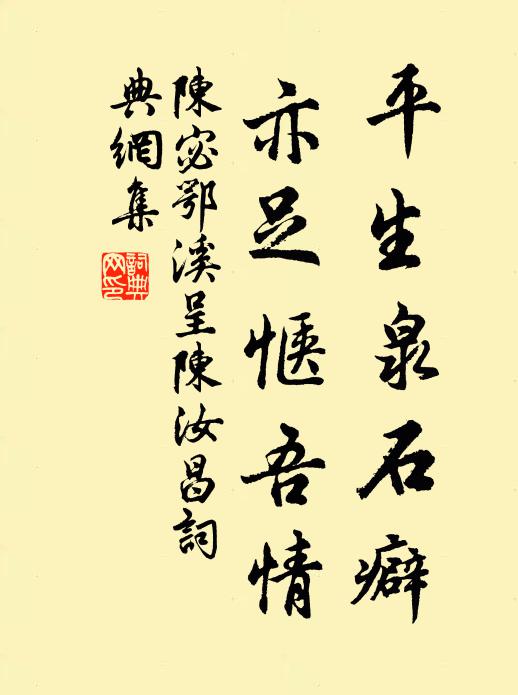 平生泉石癖
亦足惬吾情
陳宓鄂溪呈陳汝昌詞
典網集
詞典网印